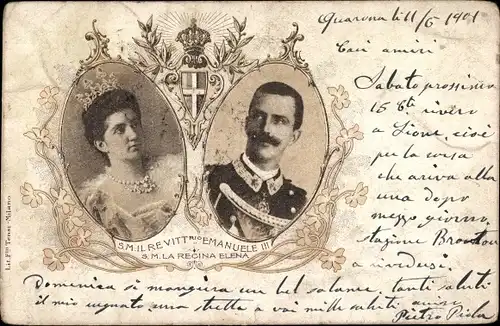 Quarona li 11/6 1901
Cari amici
Sabato prossimo
15 ct. rivero
a Lione, cioè
per la corsa
che ariva alla
una dopo
mezzo giorno,
stazione
a rivedersi
S.M. IL RE VITTRIO EMANUELE III
S.M. LA REGINA ELENA
Lit. Flli Tensi-Milano
Domenica si mangiera un bel salame, tanti saluti
il mio cugnato una stretta a voi mille saluti amico
Pietro Piola